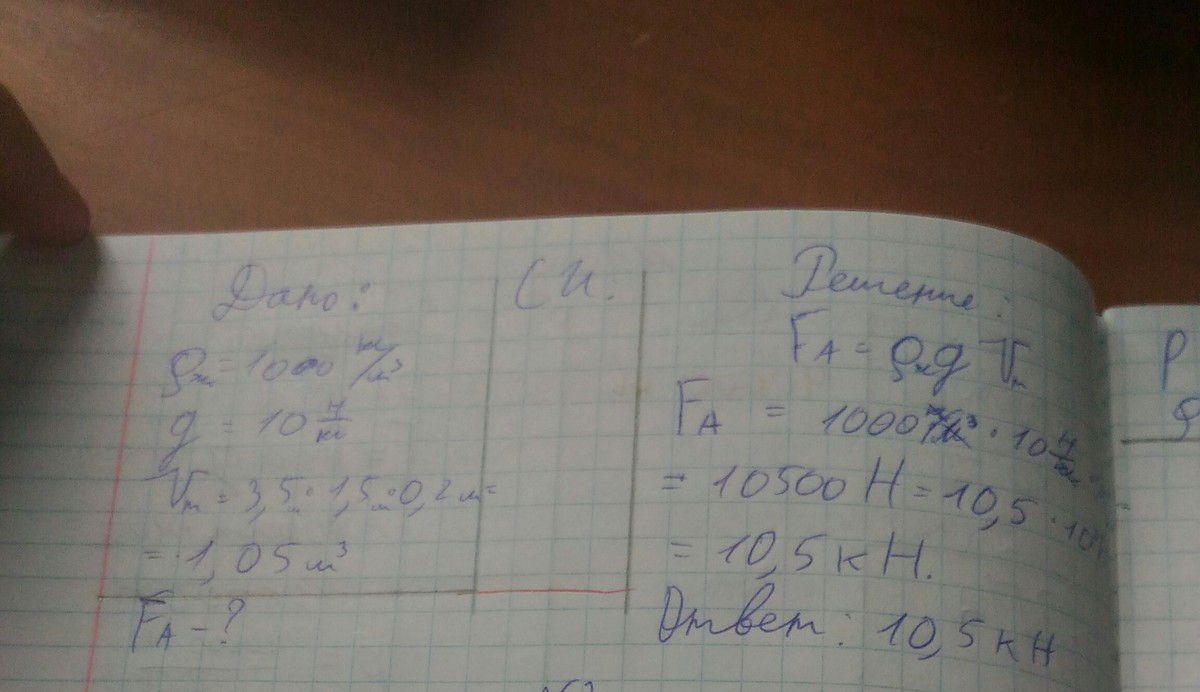 Дано:
ρж = 1000 кг/м³
g = 10 Н/кг
Vт = 3,5м · 1,5м · 0,2м =
= 1,05м³
FA - ?
СИ.
Решение:
FA = ρжg Vт
FA = 1000 кг/м³ · 10 Н/кг
= 10500 Н = 10,5 ·
= 10,5 кН.
Ответ: 10,5 кН
P
ρ